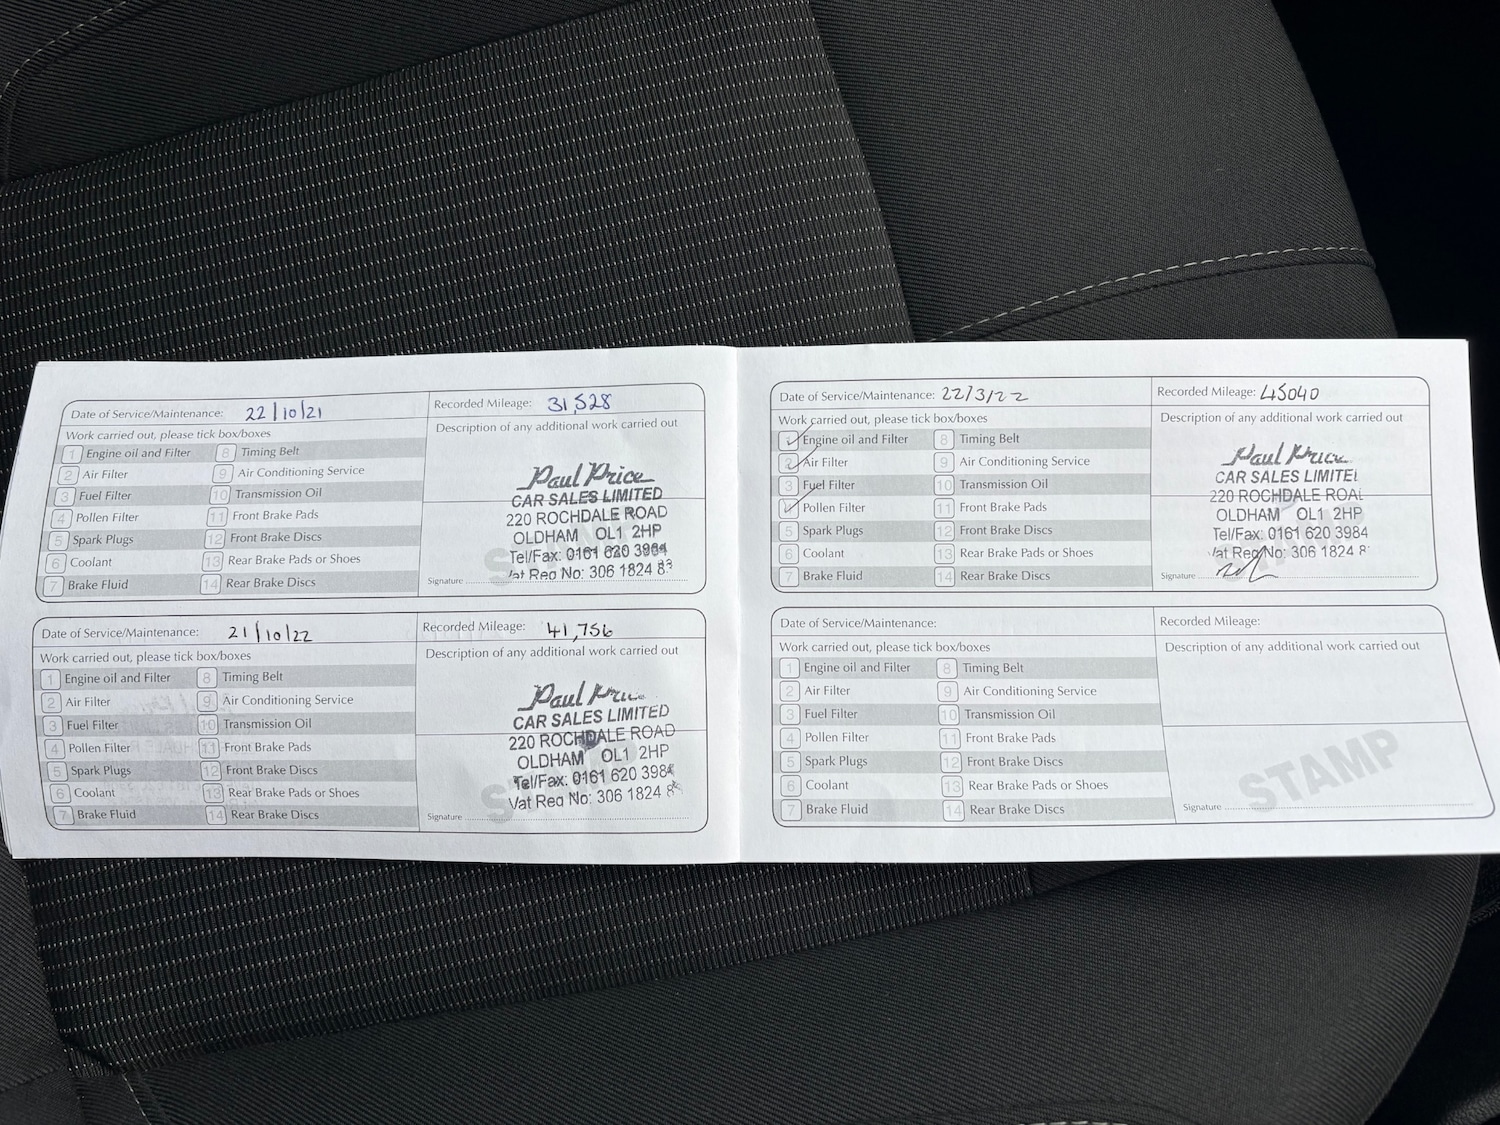 Date of Service/Maintenance: 22/10/21
Recorded Mileage: 31,528
Work carried out, please tick box/boxes
Description of any additional work carried out
1 Engine oil and Filter 8 Timing Belt
2 Air Filter 9 Air Conditioning Service
3 Fuel Filter 10 Transmission Oil
4 Pollen Filter 11 Front Brake Pads
5 Spark Plugs 12 Front Brake Discs
6 Coolant 13 Rear Brake Pads or Shoes
7 Brake Fluid 14 Rear Brake Discs
Paul Price
CAR SALES LIMITED
220 ROCHDALE ROAD
OLDHAM OL1 2HP
Tel/Fax: 0161 620 3984
Vat Reg No: 306 1824
Signature
Date of Service/Maintenance: 21/10/22
Recorded Mileage: 41,756
Work carried out, please tick box/boxes
Description of any additional work carried out
1 Engine oil and Filter 8 Timing Belt
2 Air Filter 9 Air Conditioning Service
3 Fuel Filter 10 Transmission Oil
4 Pollen Filter 11 Front Brake Pads
5 Spark Plugs 12 Front Brake Discs
6 Coolant 13 Rear Brake Pads or Shoes
7 Brake Fluid 14 Rear Brake Discs
Paul Price
CAR SALES LIMITED
220 ROCHDALE ROAD
OLDHAM OL1 2HP
Tel/Fax: 0161 620 3984
Vat Reg No: 306 1824
Signature
Date of Service/Maintenance: 22/3/22
Recorded Mileage: 45040
Work carried out, please tick box/boxes
Description of any additional work carried out
Engine oil and Filter 8 Timing Belt
2 Air Filter 9 Air Conditioning Service
3 Fuel Filter 10 Transmission Oil
Pollen Filter 11 Front Brake Pads
5 Spark Plugs 12 Front Brake Discs
6 Coolant 13 Rear Brake Pads or Shoes
7 Brake Fluid 14 Rear Brake Discs
Paul Price
CAR SALES LIMITED
220 ROCHDALE ROAD
OLDHAM OL1 2HP
Tel/Fax: 0161 620 3984
Vat Reg No: 306 1824
Signature
Date of Service/Maintenance:
Recorded Mileage:
Work carried out, please tick box/boxes
Description of any additional work carried out
1 Engine oil and Filter 8 Timing Belt
2 Air Filter 9 Air Conditioning Service
3 Fuel Filter 10 Transmission Oil
4 Pollen Filter 11 Front Brake Pads
5 Spark Plugs 12 Front Brake Discs
6 Coolant 13 Rear Brake Pads or Shoes
7 Brake Fluid 14 Rear Brake Discs
STAMP
Signature